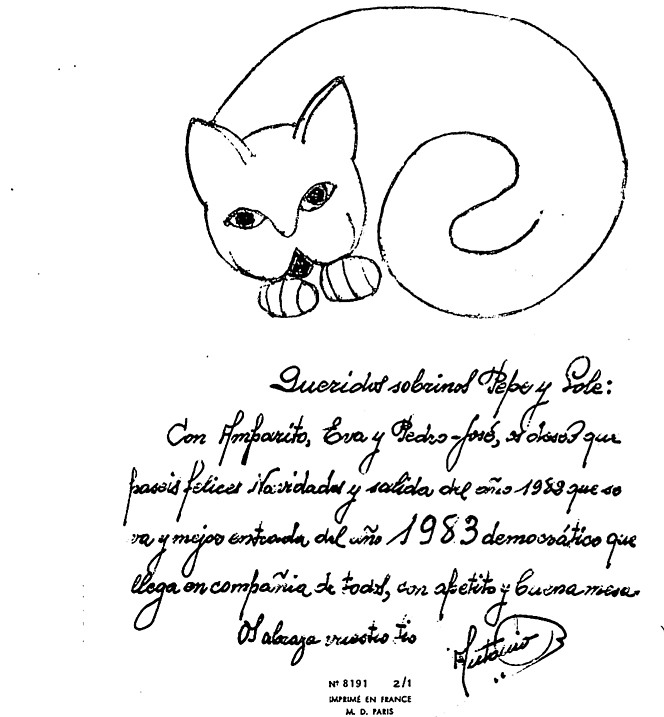 Queridos sobrinos Pepe y Sole:
Con Amparito, Eva y Pedro-José, os deseo que
paseis felices Navidades y salida del año 1982 que se
va y mejor entrada del año 1983 democrático que
llega en compañia de todos, con apetito y buena mesa.
Os abraza vuestro tio Antonio
Nº 8191 2/1
IMPRIMÉ EN FRANCE
M. D. PARIS